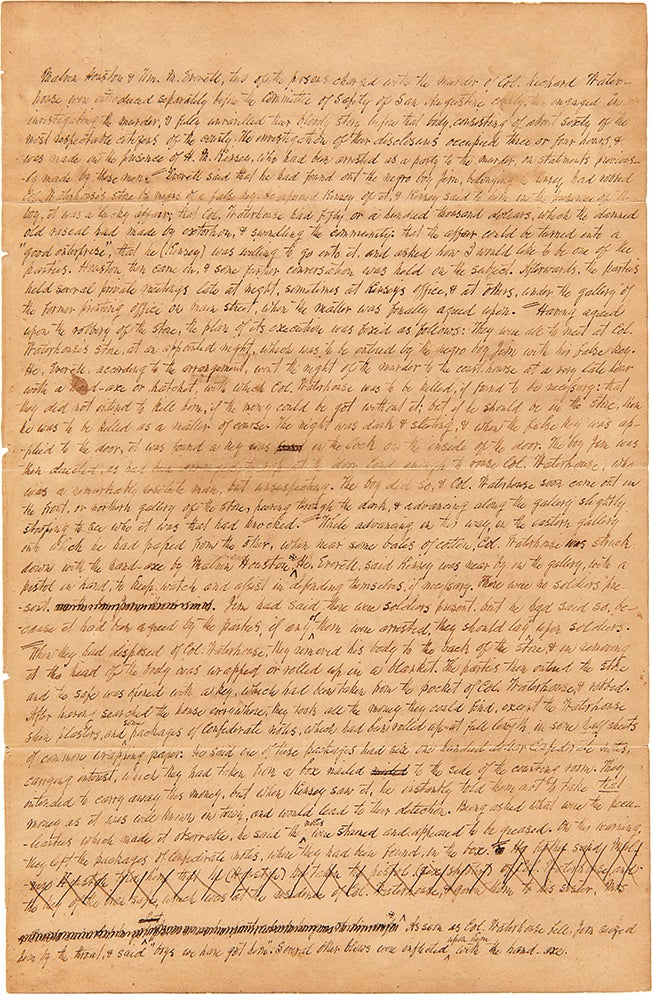 Malvin Houston & Wm. M. Everett, two of the persons charged with the murder of Col. Richard Water-
house were introduced separably before the Committee of Safety of San Augustine county, then engaged in
investigating the murder, & fully unravelled their bloody story before that body, consisting of about seventy of the
most respectable citizens of the county. The investigation of their disclosures occupied three or four hours, &
was made in the presence of H. M. Kinsey, who had been arrested as a party to the murder, on statements previous-
ly made by these men. Everett said that he had found out the negro boy Jim, belonging to Kinsey, had robbed
Col. Waterhouse's store by means of a false key. He informed Kinsey of it, & Kinsey said to him in the presence of the
boy, it was a lucky affair; that Col. Waterhouse had fifty, or a hundred thousand dollars, which the damned
old rascal had made by extortion, & swindling the community: that the affair could be turned into a
"good enterprise", that he (Kinsey) was willing to go into it, and asked how I would like to be one of the
parties. Houston then came in, & some further conversation was held on the subject. Afterwards, the parties
held several private meetings late at night, sometimes at Kinsey's office, & at others, under the gallery of
the former printing office on main street, when the matter was finally agreed upon. Having agreed
upon the robbery of the store, the plan of its execution was fixed as follows: they were all to meet at Col.
Waterhouse's store, at an appointed night, which was to be entered by the negro boy Jim with his false key.
He, Everett, according to the arrangement, went the night of the murder to the courthouse at a very late hour
with a hand-axe or hatchet, with which Col. Waterhouse was to be killed, if found to be necessary: that
they did not intend to kill him, if the money could be got without it; but if he should be in the store, then
he was to be killed as a matter of course. The night was dark & sleeting, & when the false key was ap-
plied to the door, it was found a key was in the lock on the inside of the door. The boy Jim was
then directed, as had been arranged to at the door loud enough to rouse Col. Waterhouse, who
was a remarkably resolute man, but unsuspecting. The boy did so, & Col. Waterhouse soon came out in
the front, or northern gallery of the store, peering through the dark, & advancing along the gallery slightly
stooping to see who it was that had knocked. While advancing in this way, in the eastern gallery
into which he had passed from the other, when near some bales of cotton, Col. Waterhouse was struck
down with the hand-axe by Malvin Houston. He, Everett, said Kinsey was near by on the gallery, with a
pistol in hand, to keep watch and assist in defending themselves, if necessary. There were no soldiers pre-
sent. Jim had said there were soldiers present, but he had said so, be-
cause it had been agreed by the parties, if any of them were arrested, they should lay upon soldiers.
When they had disposed of Col. Waterhouse, they removed his body to the back of the store & in removing
it the head of the body was wrapped or rolled up in a blanket. the parties then entered the store
and the safe was opened with a key, which had been taken from the pocket of Col. Waterhouse, & robbed.
After having searched the house everywhere, they took all the money they could find, except the Waterhouse
shin plasters, and some packages of Confederate notes, which had been rolled up at full length, in some half sheets
of common wrapping paper. He said one of these packages had six one hundred dollar Confederate notes,
carrying interest, which they had taken from a box nailed to the side of the counting room. They
intended to carry away this money, but when Kinsey saw it, he instantly told them not to take that
money as it was well known in town, and would lead to their detection. Being asked what were the pecu-
liarities which made it observable, he said the notes were stained and appeared to be greased. On this warning,
they left the packages of Confederate notes, where they had been found, in the box. He further said,
the key of the iron safe, which was at the residence of Col. Waterhouse, & given them to his sister, Mrs
As soon as Col. Waterhouse fell, Jim seized
him by the throat, & said "boys we have got him". Several other blows were inflicted upon him with the hand-axe.